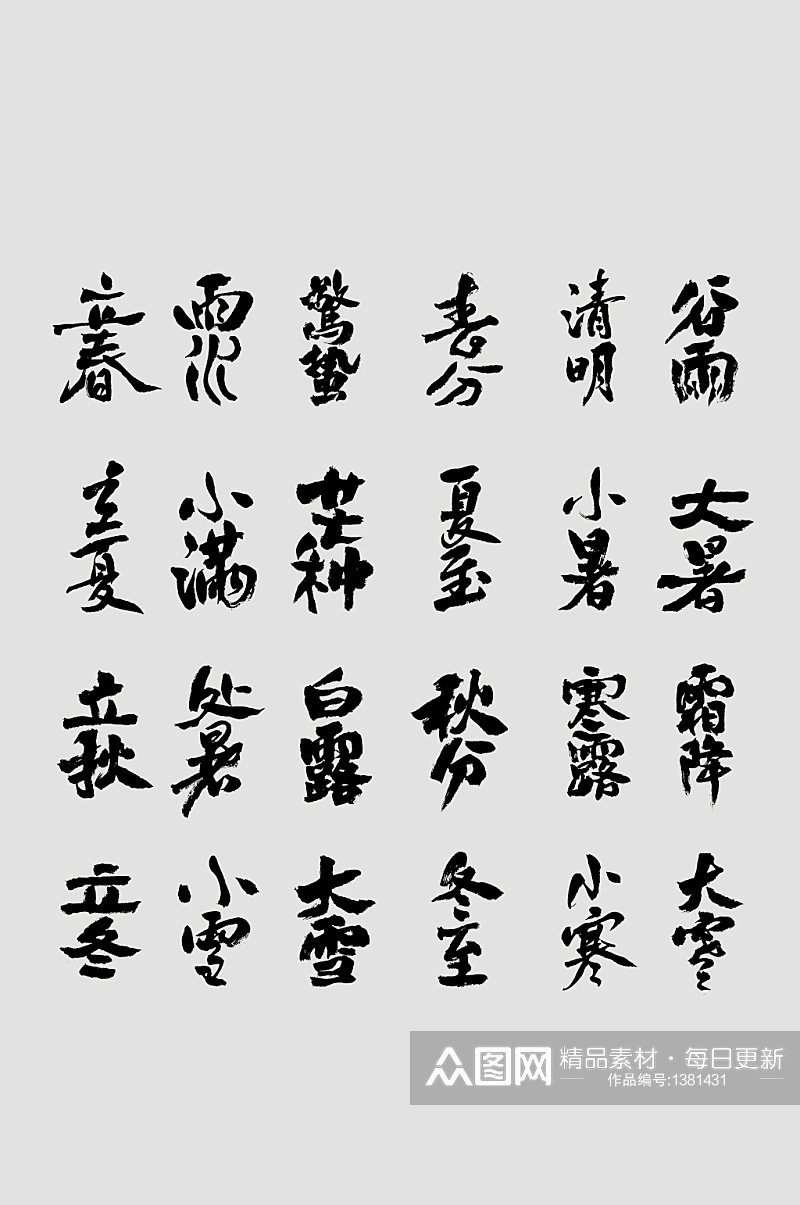 立春 雨水 驚蛰 春分 清明 谷雨
立夏 小满 芒种 夏至 小暑 大暑
立秋 处暑 白露 秋分 寒露 霜降
立冬 小雪 大雪 冬至 小寒 大寒
众图网 精品素材·每日更新
作品编号:1381431